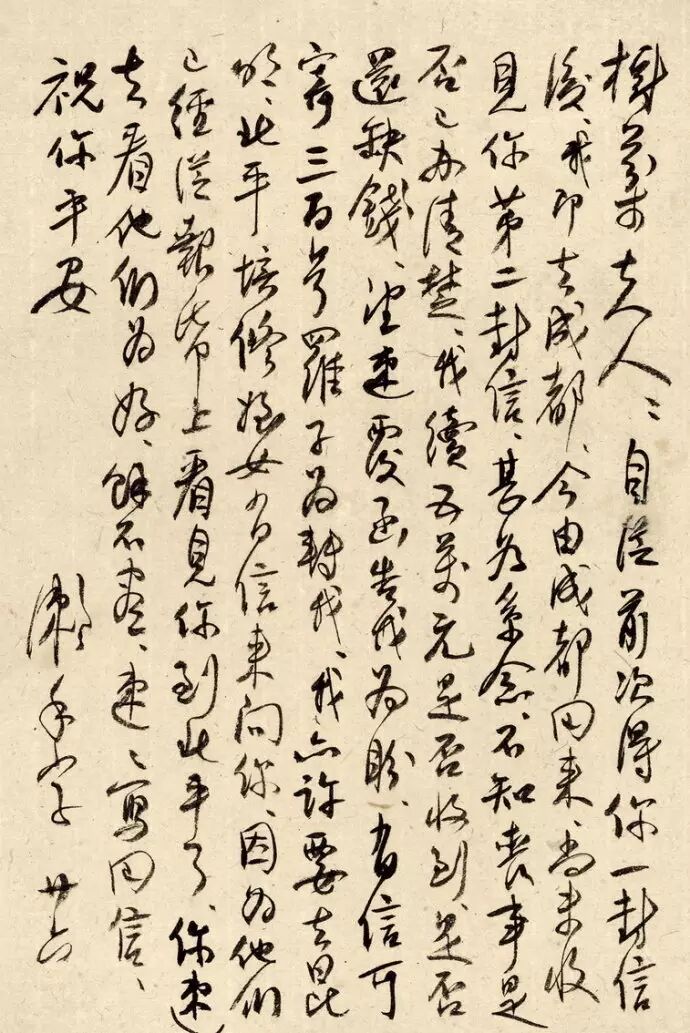 夫人：自從前次得你一封信
後、我即去成都、今由成都回来、尚未收
見你第二封信、甚為系念、不知喪事是
否已办清楚、我續五萬元是否收到、是否
還缺錢、望速覆函告我为盼、有信可
寄三百号羅子为轉我、我亦許要去昆
明、北平培修姪女有信来问你、因为他们
已經從報帋上看見你到北平了、你速
去看他们为好、餘不盡、速々寫回信、
祝你平安
手字 廿六